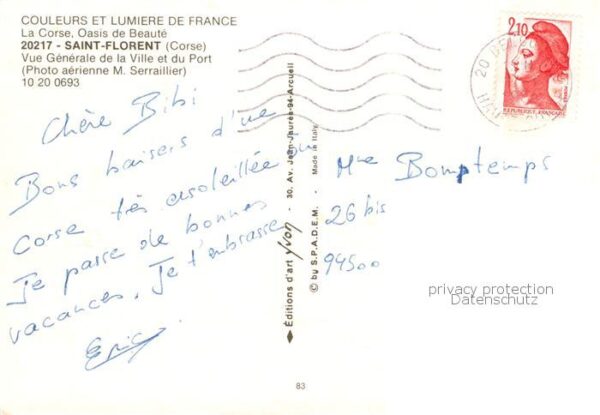 COULEURS ET LUMIERE DE FRANCE
La Corse, Oasis de Beauté
20217 - SAINT-FLORENT (Corse)
Vue Générale de la Ville et du Port
(Photo aérienne M. Serraillier)
10 20 0693
Chère Bibi
Bons baisers d'une
Corse très ensoleillée où
Je passe de bonnes
vacances. Je t'embrasse
Eric
Editions d'art Yvon - 30, Av. Jean-Jaurès-94-Arcueil
© by S.P.A.D.E.M. - Made in Italy
2,10
REPUBLIQUE FRANÇAISE
20
Mme Bomptemps
26 bis
94500
privacy protection
Datenschutz
83